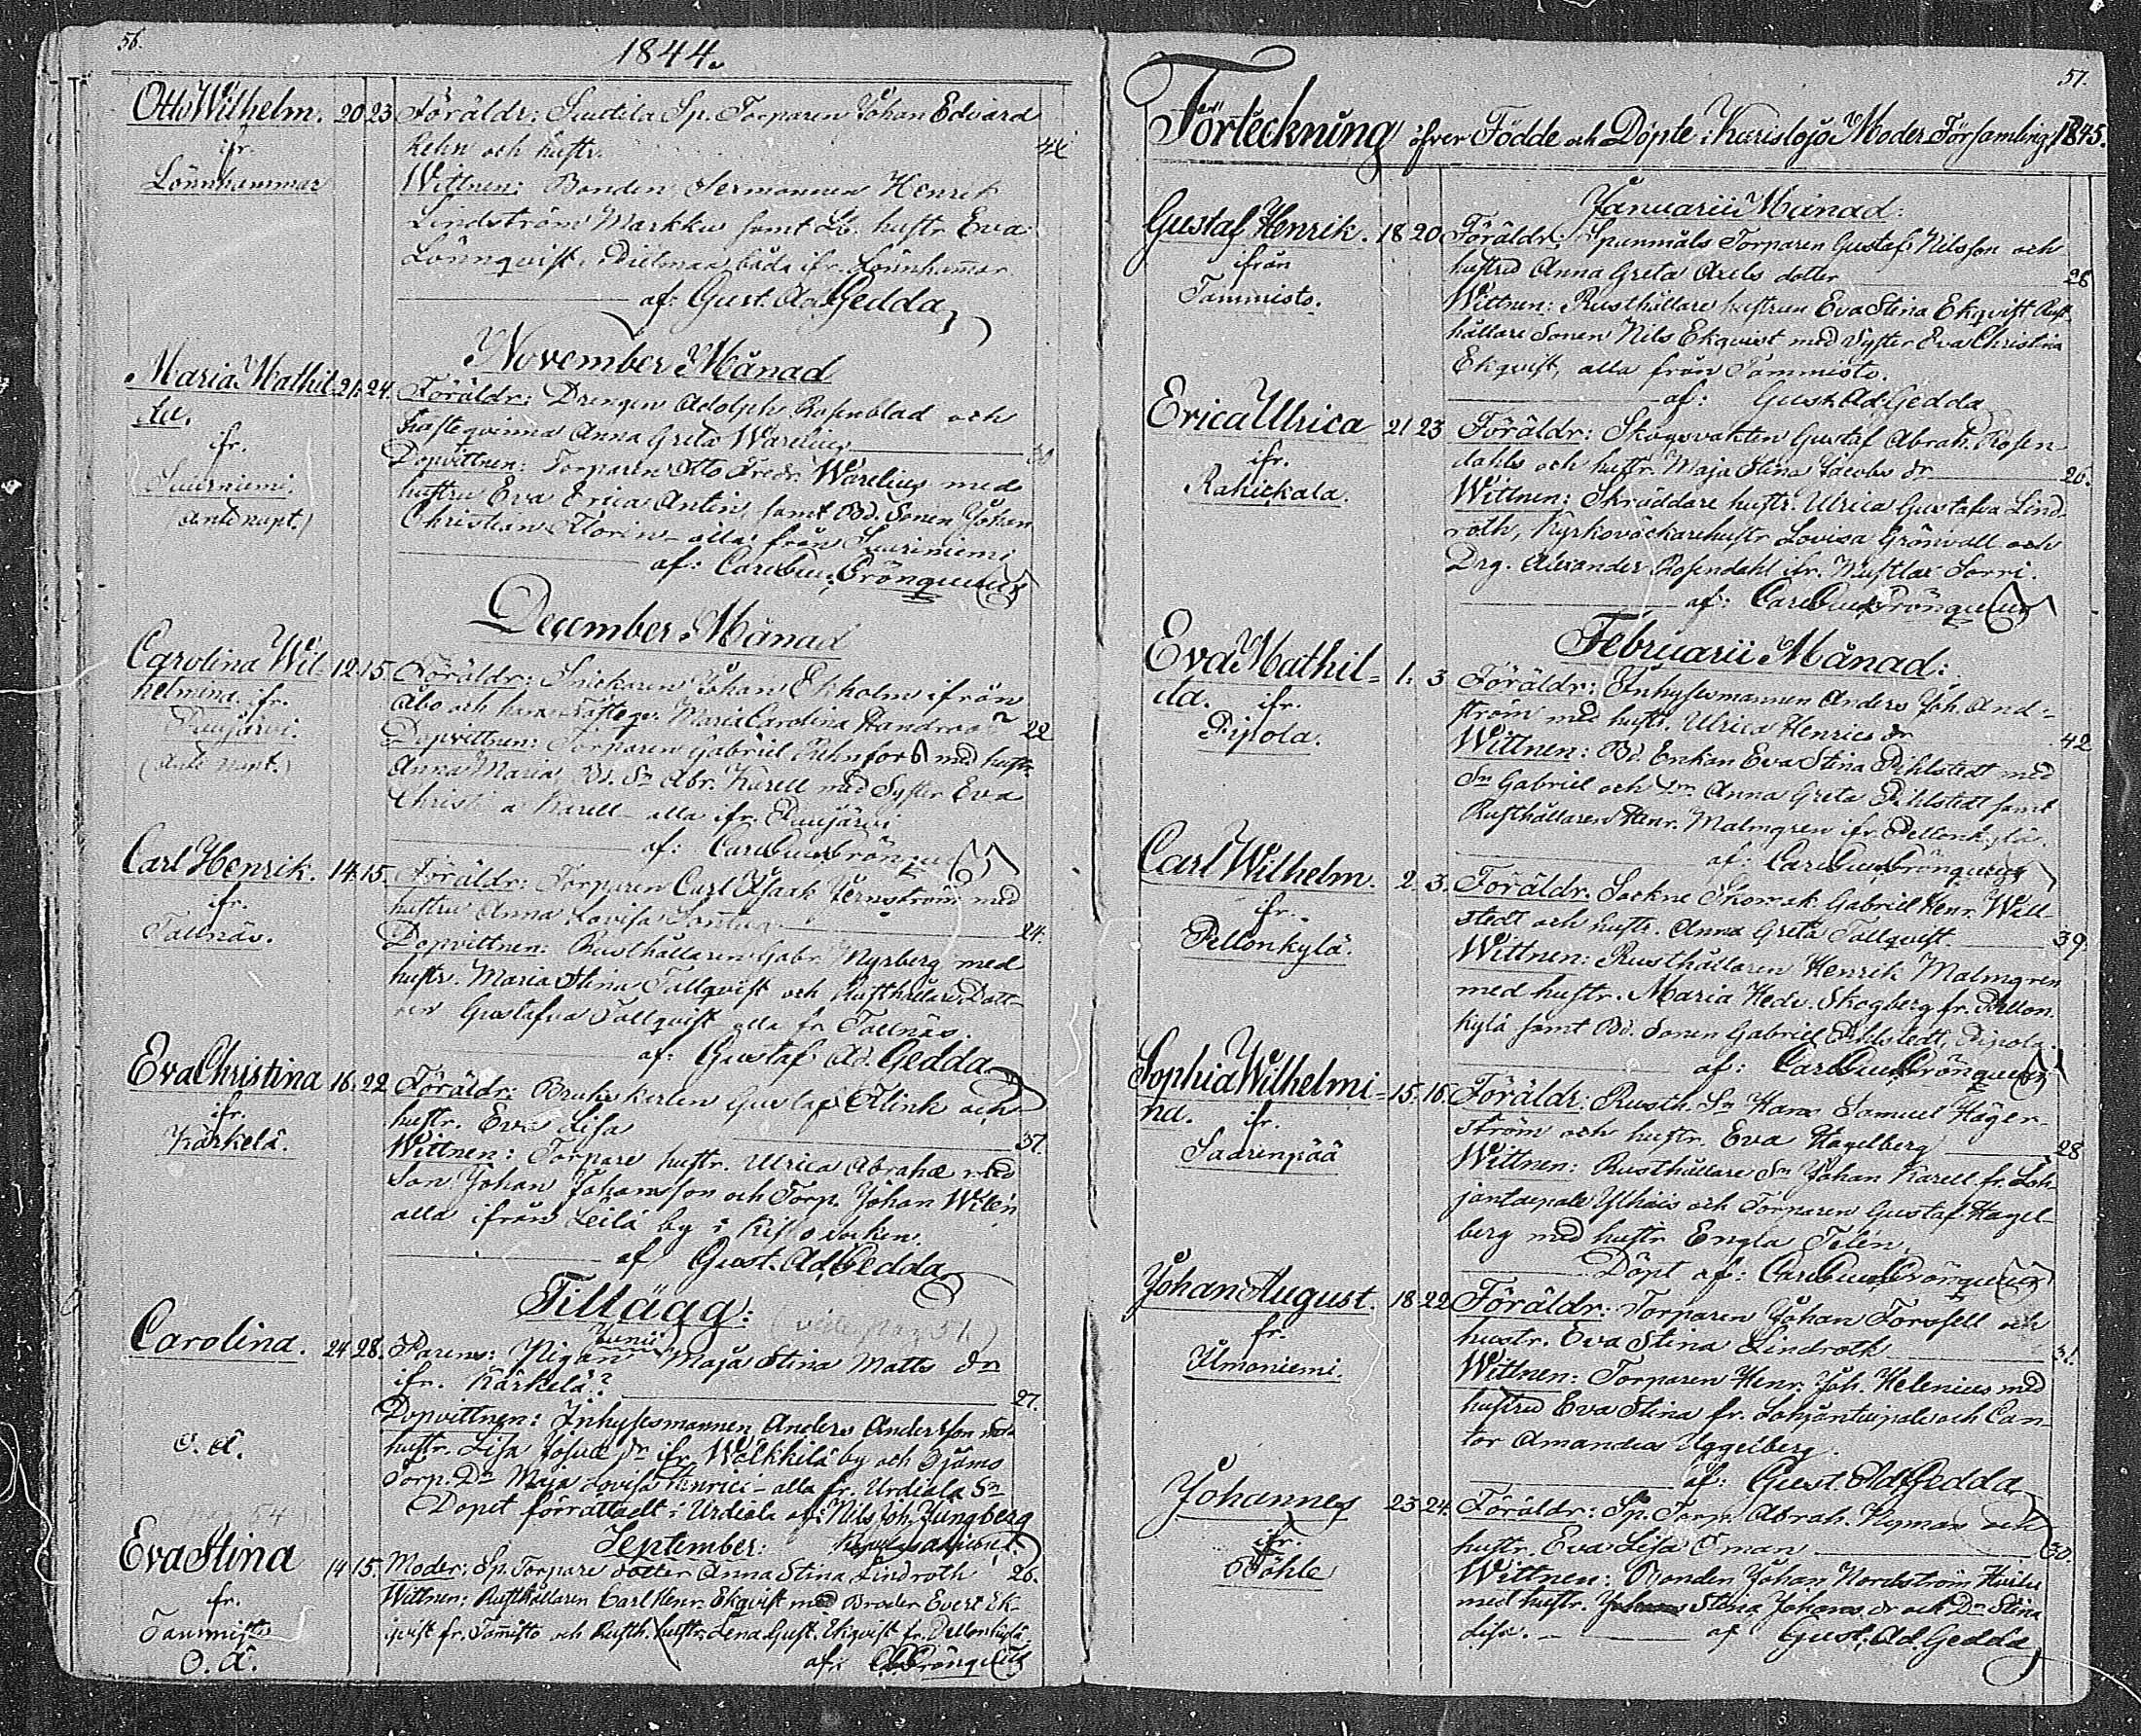 56.
1844.
Otto Wilhelm. 20 23 Föräldr: Suutila Sp. Torparen Johan Edvard
ifr. Rehn och hustr. 44
Lönnhammar Wittnen: Bonden Hermannen Henrik
Lindström Markku samt Lb. hustr. Eva
Lönnqvist, båda ifr. Lönnhammar.
af: Gust. Ad. Gedda
November Månad
Maria Mathil- 21. 24. Föräldr: Drengen Adolph Rosenblad och
da. Fästeqvinna Anna Greta Warelius
ifr. Dopvittnen: Torparen Otto Fredr. Warelius med
Suurniemi. hustru Eva Erica Antin, samt Bd. Sonen Johan
ante nupt.) Christian Florin - alla från Suurniemi
af: Carl Gust. Grönqvist
December Månad
Carolina Wil- 12. 15. Föräldr: Snickaren Johan Ekholm ifrån
helmina. ifr. Åbo och hans Fästeqv. Maria Carolina 22
Puujärvi. Dopvittnen: Torparen Gabriel med hustr.
(ante nupt.) Anna Maria, Bd. Sn Abr. Karell med Syster Eva
Christina Karell - alla ifr. Puujärvi
af: Carl Gust. Grönqvist
Carl Henrik. 14. 15. Föräldr: Torparen Carl Isaak Jernström med
ifr. hustru Anna Lovisa 24.
Tallnäs. Dopvittnen: Rusthållaren Gabr. Myrberg med
hustr. Maria Stina Tallqvist och Rusthållare Dott-
ren Gustafva Tallqvist alla fr. Tallnäs.
af: Gustaf Ad. Gedda
Eva Christina 16. 22 Föräldr: Bruks karlen Gustaf Flink och
ifr. hustr. Eva Lisa 37.
Kärkelä. Wittnen: Torpare hustr. Ulrica Abrahs med
Son Johan Johansson och Torp. Johan Wilén
alla ifrån Leilä by i Kisko socken.
af Gust. Ad. Gedda
Tillägg: (vide pag. 51.)
Junii
Carolina. 24 28. Parens: Pigan Maja Stina Matts dr
ifr. Kärkelä? 27.
Dopvittnen: Inhysesmannen Anders Andersson med
o. ä. hustr. Lisa Josua dr ifr. Wälkkilä by och
Torp. Dr Maja Lovisa Henrici - alla fr. Urdiala Sn
Dopet förrättadt i Urdiala af: Nils Joh. Ljungberg
pag. 54)
September:
Eva Stina 14 15. Moder: Sp. Torpare dotter Anna Stina Lindroth 26.
fr. Wittnen: Rusthållaren Carl Henr. Ekqvist med Broder Evert Ek-
Tammisto qvist fr. Tammisto och Rusth. hustr. Lena Gust. Ekqvist fr. Pellonkylä
O. ä. af: C. G. Grönqvist
57.
Förteckning öfver Födde och Döpte i Karislojo Moder Församling, 1845.
Januarii Månad:
Gustaf Henrik. 18 20 Föräldr: Spunmåls Torparen Gustaf Nilsson och
ifrån hustru Anna Greta Axels dotter 28
Tammisto. Wittnen: Rusthållare hustrun Eva Stina Ekqvist Rust-
hållare Sonen Nils Ekqvist med Syster Eva Christina
Ekqvist, alla från Tammisto.
af: Gust. Ad. Gedda
Erica Ulrica 21 23 Föräldr: Skogsvakten Gustaf Abrah. Rosen-
ifr. dahl och hustr. Maja Stina Jacobs dr 26.
Kahickala. Wittnen: Skräddare hustr. Ulrica Gustafva Lind-
roth, Kyrkoväckarehustr Lovisa Grönvall och
Drg. Alexander Rosendahl ifr. Mustlax Sorri.
af: Carl Gust. Grönqvist
Februarii Månad:
Eva Mathil- 1. 3 Föräldr: Inhysesmannen Anders Joh. And-
da. ifr. ström med hustr. Ulrica Henrics dr 42
Pipola. Wittnen: Bd. Enkan Eva Stina Pihlstedt med
Sn Gabriel och Dr Anna Greta Pihlstedt samt
Rusthållaren Henr. Malmgren ifr. Pellonkylä.
af: Carl Gust. Grönqvist
Carl Wilhelm. 2. 3. Föräldr. Sockne Skomak. Gabriel Henr. Will-
ifr. stedt och hustr. Anna Greta Tallqvist. 39.
Pellonkylä. Wittnen: Rusthållaren Henrik Malmgren
med hustr. Maria Hedv. Skogberg fr. Pellon-
kylä samt Bd. Sonen Gabriel Pihlstedt, Pipola.
af: Carl Gust. Grönqvist
Sophia Wilhelmi- 15. 16. Föräldr: Rusth. Sn Hans Samuel Häger-
na. ifr. ström och hustr. Eva Hagelberg 28
Saarenpää Wittnen: Rusthållare Sn Johan Karell fr. Loh-
jantaipale Ylhäis och Torparen Gustaf Hagel-
berg med hustr Engla Telén.
Döpt af: Carl Gust. Grönqvist
Johan August. 18 22 Föräldr: Torparen Johan Forssell och
fr. hustr. Eva Stina Lindroth 31.
Ilmoniemi. Wittnen: Torparen Henr. Joh. Helenius med
hustru Eva Stina fr. Lohjantaipale och Can-
tor Amandus Uggelberg.
af: Gust. Ad. Gedda
Johannes 23 24. Föräldr: Sp. Torp. Abrah. Hopman och
ifr. hustr. Eva Lisa Öman 30.
Pöhle Wittnen: Bonden Johan Nordström
med hustr. Stina Johans dr och Dr Stina
Lisa. af Gust. Ad. Gedda